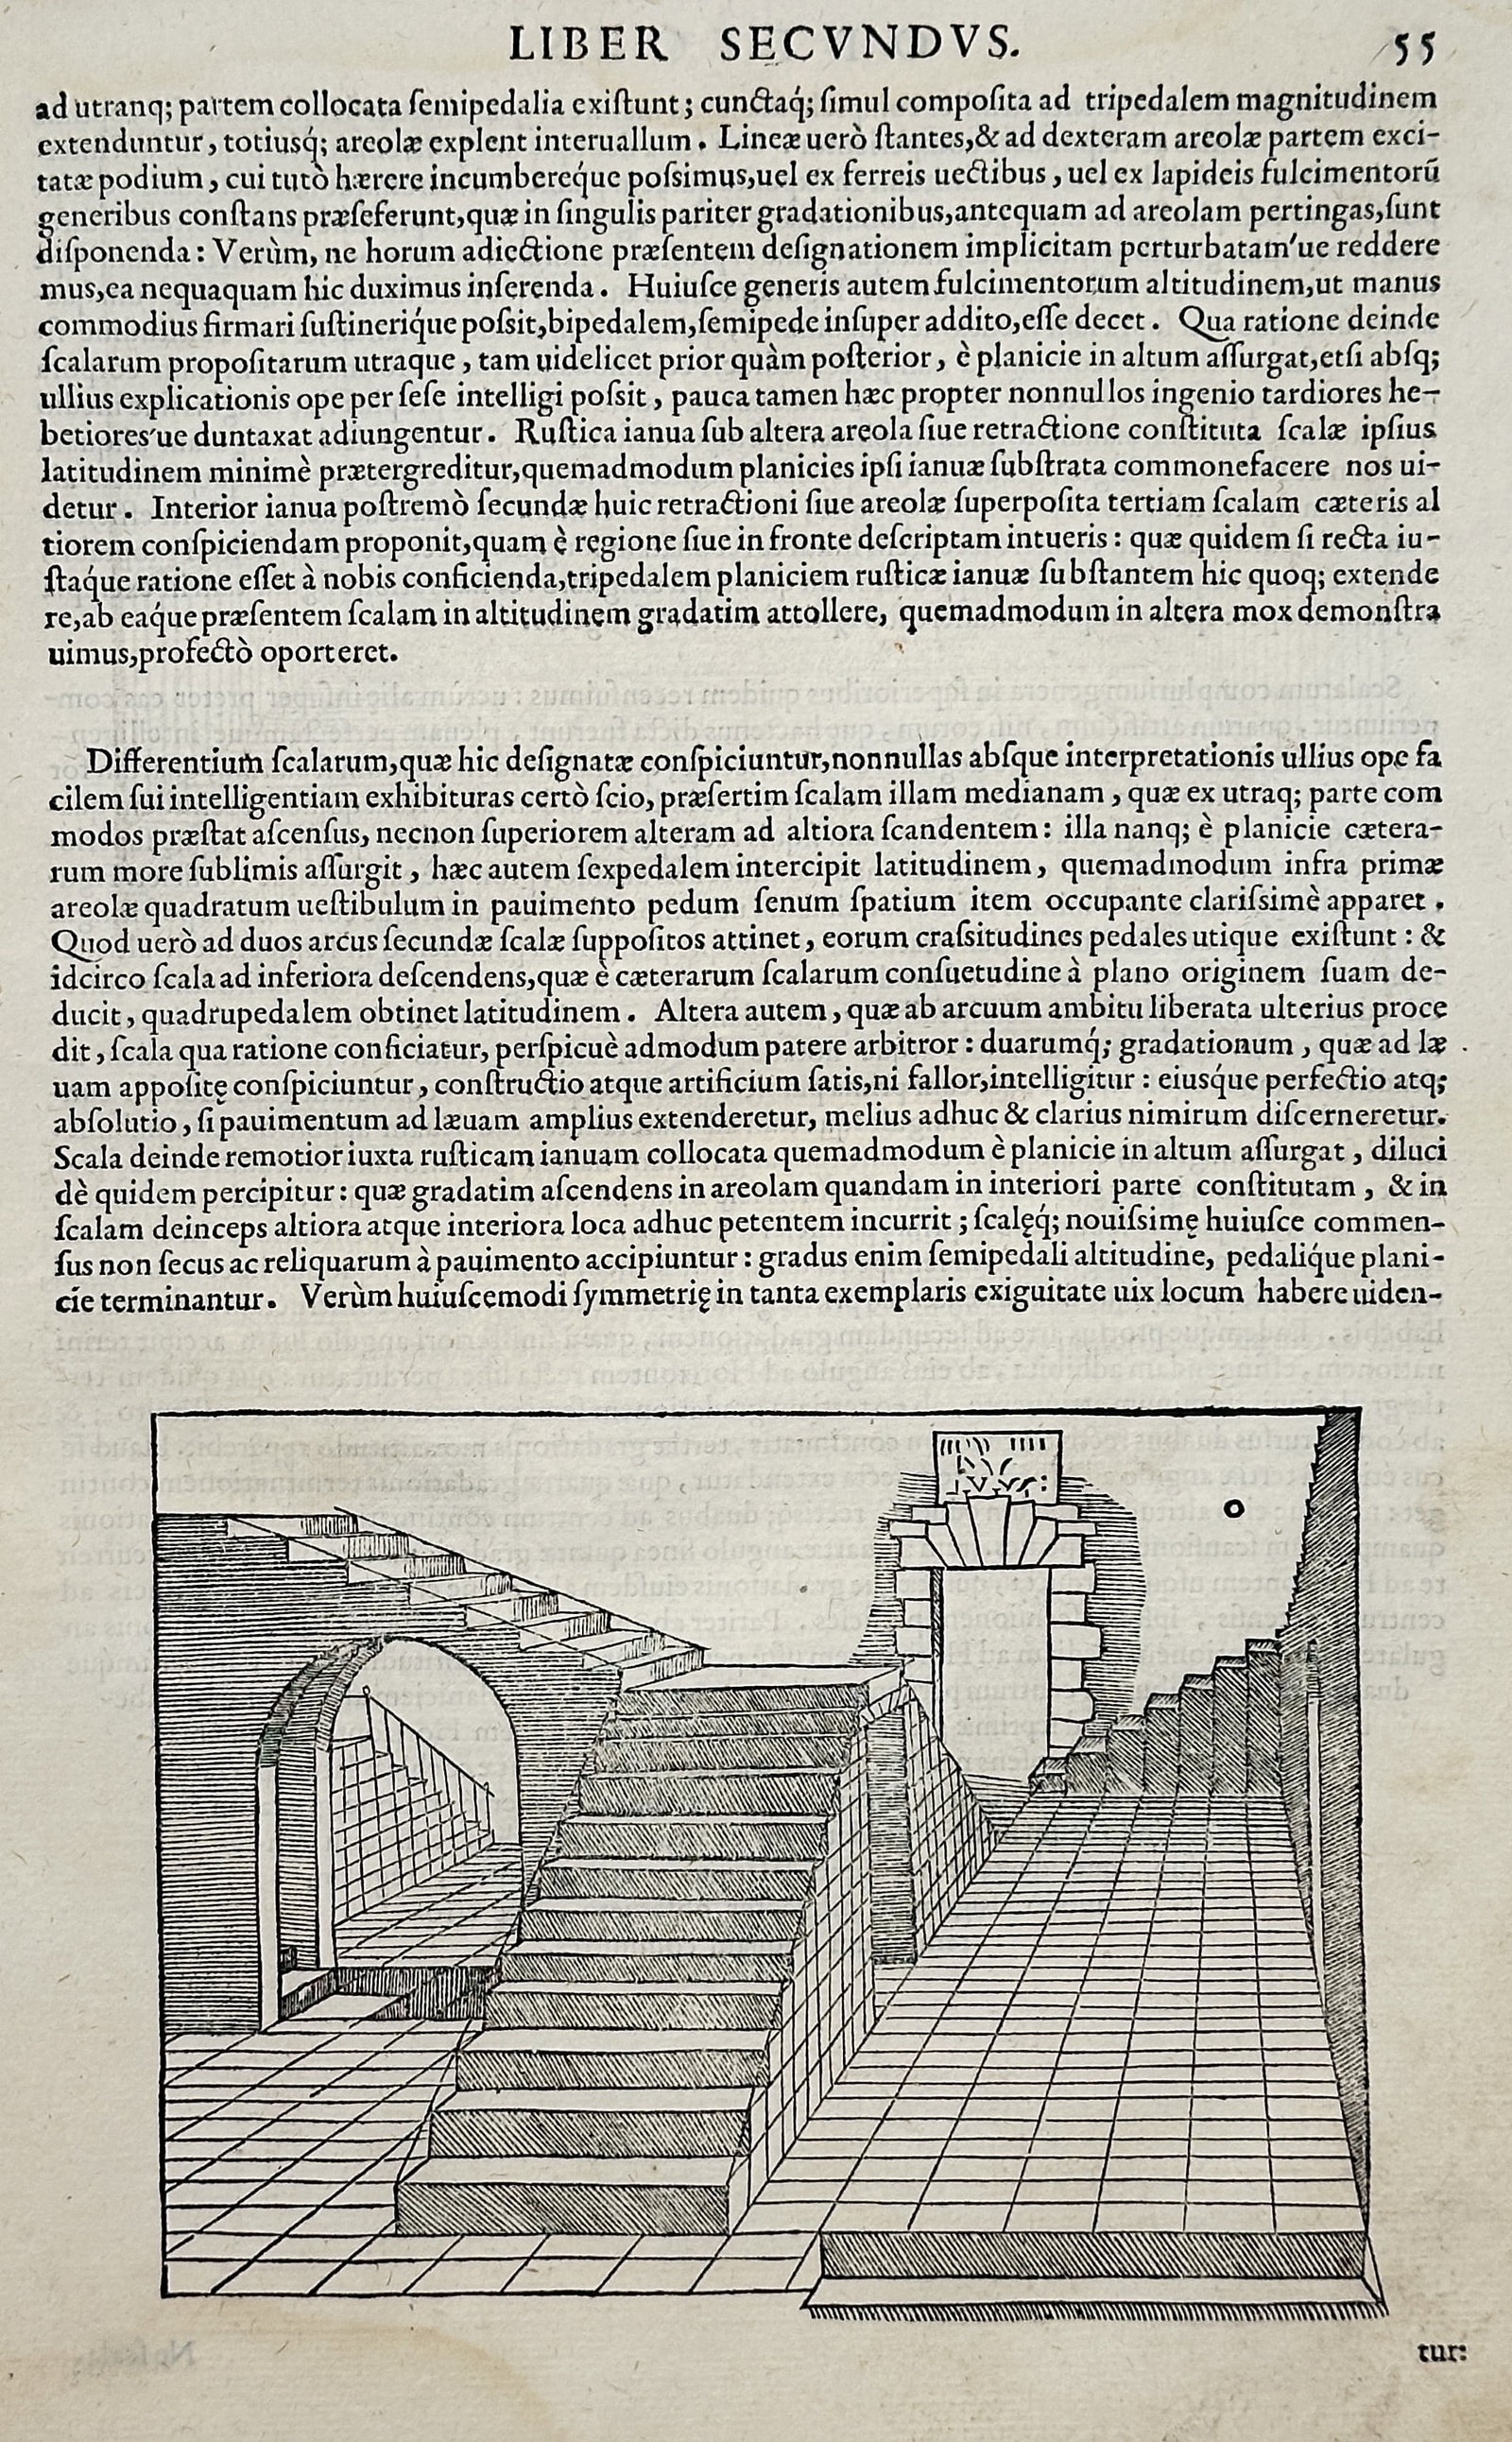 LIBER SECVNDVS. 55
ad utranq; partem collocata ſemipedalia exiſtunt; cunctaq́; ſimul compoſita ad tripedalem magnitudinem
extenduntur, totiusq́; areolæ explent interuallum. Lineæ uerò ſtantes,& ad dexteram areolæ partem exci-
tatæ podium, cui tutò hærere incumbereq́ue poſsimus,uel ex ferreis uectibus, uel ex lapideis fulcimentorū
generibus conſtans præſeferunt,quæ in ſingulis pariter gradationibus,antequam ad areolam pertingas,ſunt
diſponenda: Verùm, ne horum adiectione præſentem deſignationem implicitam perturbatam'ue reddere
mus,ea nequaquam hic duximus inſerenda. Huiuſce generis autem fulcimentorum altitudinem,ut manus
commodius firmari ſuſtineriq́ue poſsit,bipedalem,ſemipede inſuper addito,eſſe decet. Qua ratione deinde
ſcalarum propoſitarum utraque, tam uidelicet prior quàm poſterior, è planicie in altum aſſurgat,etſi abſq;
ullius explicationis ope per ſeſe intelligi poſsit, pauca tamen hæc propter nonnullos ingenio tardiores he-
betiores'ue duntaxat adiungentur. Ruſtica ianua ſub altera areola ſiue retractione conſtituta ſcalæ ipſius
latitudinem minimè prætergreditur,quemadmodum planicies ipſi ianuæ ſubſtrata commonefacere nos ui-
detur. Interior ianua poſtremò ſecundæ huic retractioni ſiue areolæ ſuperpoſita tertiam ſcalam cæteris al
tiorem conſpiciendam proponit,quam è regione ſiue in fronte deſcriptam intueris: quæ quidem ſi recta iu-
ſtaq́ue ratione eſſet à nobis conficienda,tripedalem planiciem ruſticæ ianuæ ſubſtantem hic quoq; extende
re,ab eaq́ue præſentem ſcalam in altitudinem gradatim attollere, quemadmodum in altera mox demonſtra
uimus,profectò oporteret.
Differentium ſcalarum,quæ hic deſignatæ conſpiciuntur,nonnullas abſque interpretationis ullius ope fa
cilem ſui intelligentiam exhibituras certò ſcio, præſertim ſcalam illam medianam, quæ ex utraq; parte com
modos præſtat aſcenſus, necnon ſuperiorem alteram ad altiora ſcandentem: illa nanq; è planicie cætera-
rum more ſublimis aſſurgit, hæc autem ſexpedalem intercipit latitudinem, quemadmodum infra primæ
areolæ quadratum ueſtibulum in pauimento pedum ſenum ſpatium item occupante clariſsimè apparet.
Quod uerò ad duos arcus ſecundæ ſcalæ ſuppoſitos attinet, eorum craſsitudines pedales utique exiſtunt: &
idcirco ſcala ad inferiora deſcendens,quæ è cæterarum ſcalarum conſuetudine à plano originem ſuam de-
ducit, quadrupedalem obtinet latitudinem. Altera autem, quæ ab arcuum ambitu liberata ulterius proce
dit, ſcala qua ratione conficiatur, perſpicuè admodum patere arbitror: duarumq́; gradationum, quæ ad læ
uam appoſitę conſpiciuntur, conſtructio atque artificium ſatis,ni fallor,intelligitur: eiusq́ue perfectio atq;
abſolutio, ſi pauimentum ad læuam amplius extenderetur, melius adhuc & clarius nimirum diſcerneretur.
Scala deinde remotior iuxta ruſticam ianuam collocata quemadmodum è planicie in altum aſſurgat, diluci
dè quidem percipitur: quæ gradatim aſcendens in areolam quandam in interiori parte conſtitutam, & in
ſcalam deinceps altiora atque interiora loca adhuc petentem incurrit; ſcalęq́; nouiſsimę huiuſce commen-
ſus non ſecus ac reliquarum à pauimento accipiuntur: gradus enim ſemipedali altitudine, pedaliq́ue plani-
cie terminantur. Verùm huiuſcemodi ſymmetrię in tanta exemplaris exiguitate uix locum habere uiden-
tur: